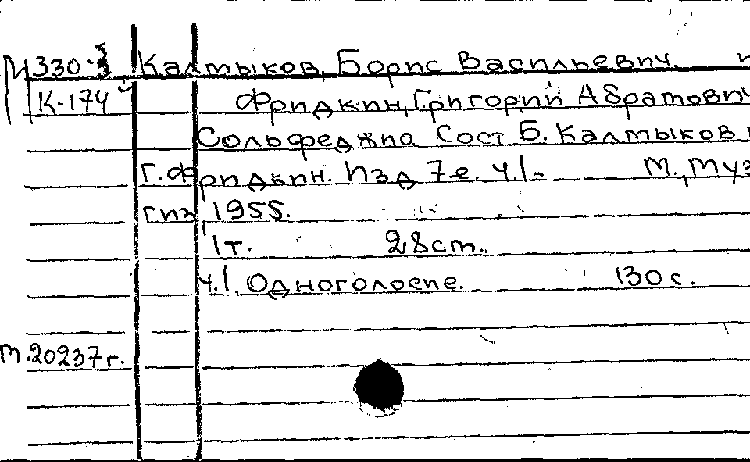 М 330-3 Калмыков, Борис Васильевич. и
К-174 Фридкин, Григорий Абрамович
Сольфеджио Сост Б. Калмыков и
Г. Фридкин. Изд 7-е. Ч.1. М., Муз
гиз, 1955.
1т. 28 ст.
ч.1. Одноголосие. 130 с.
т.20237г.